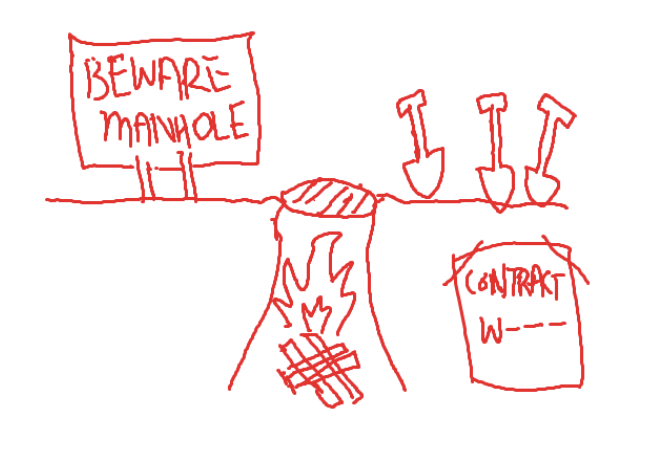 BEWARE
MANHOLE
CONTRACT
W----